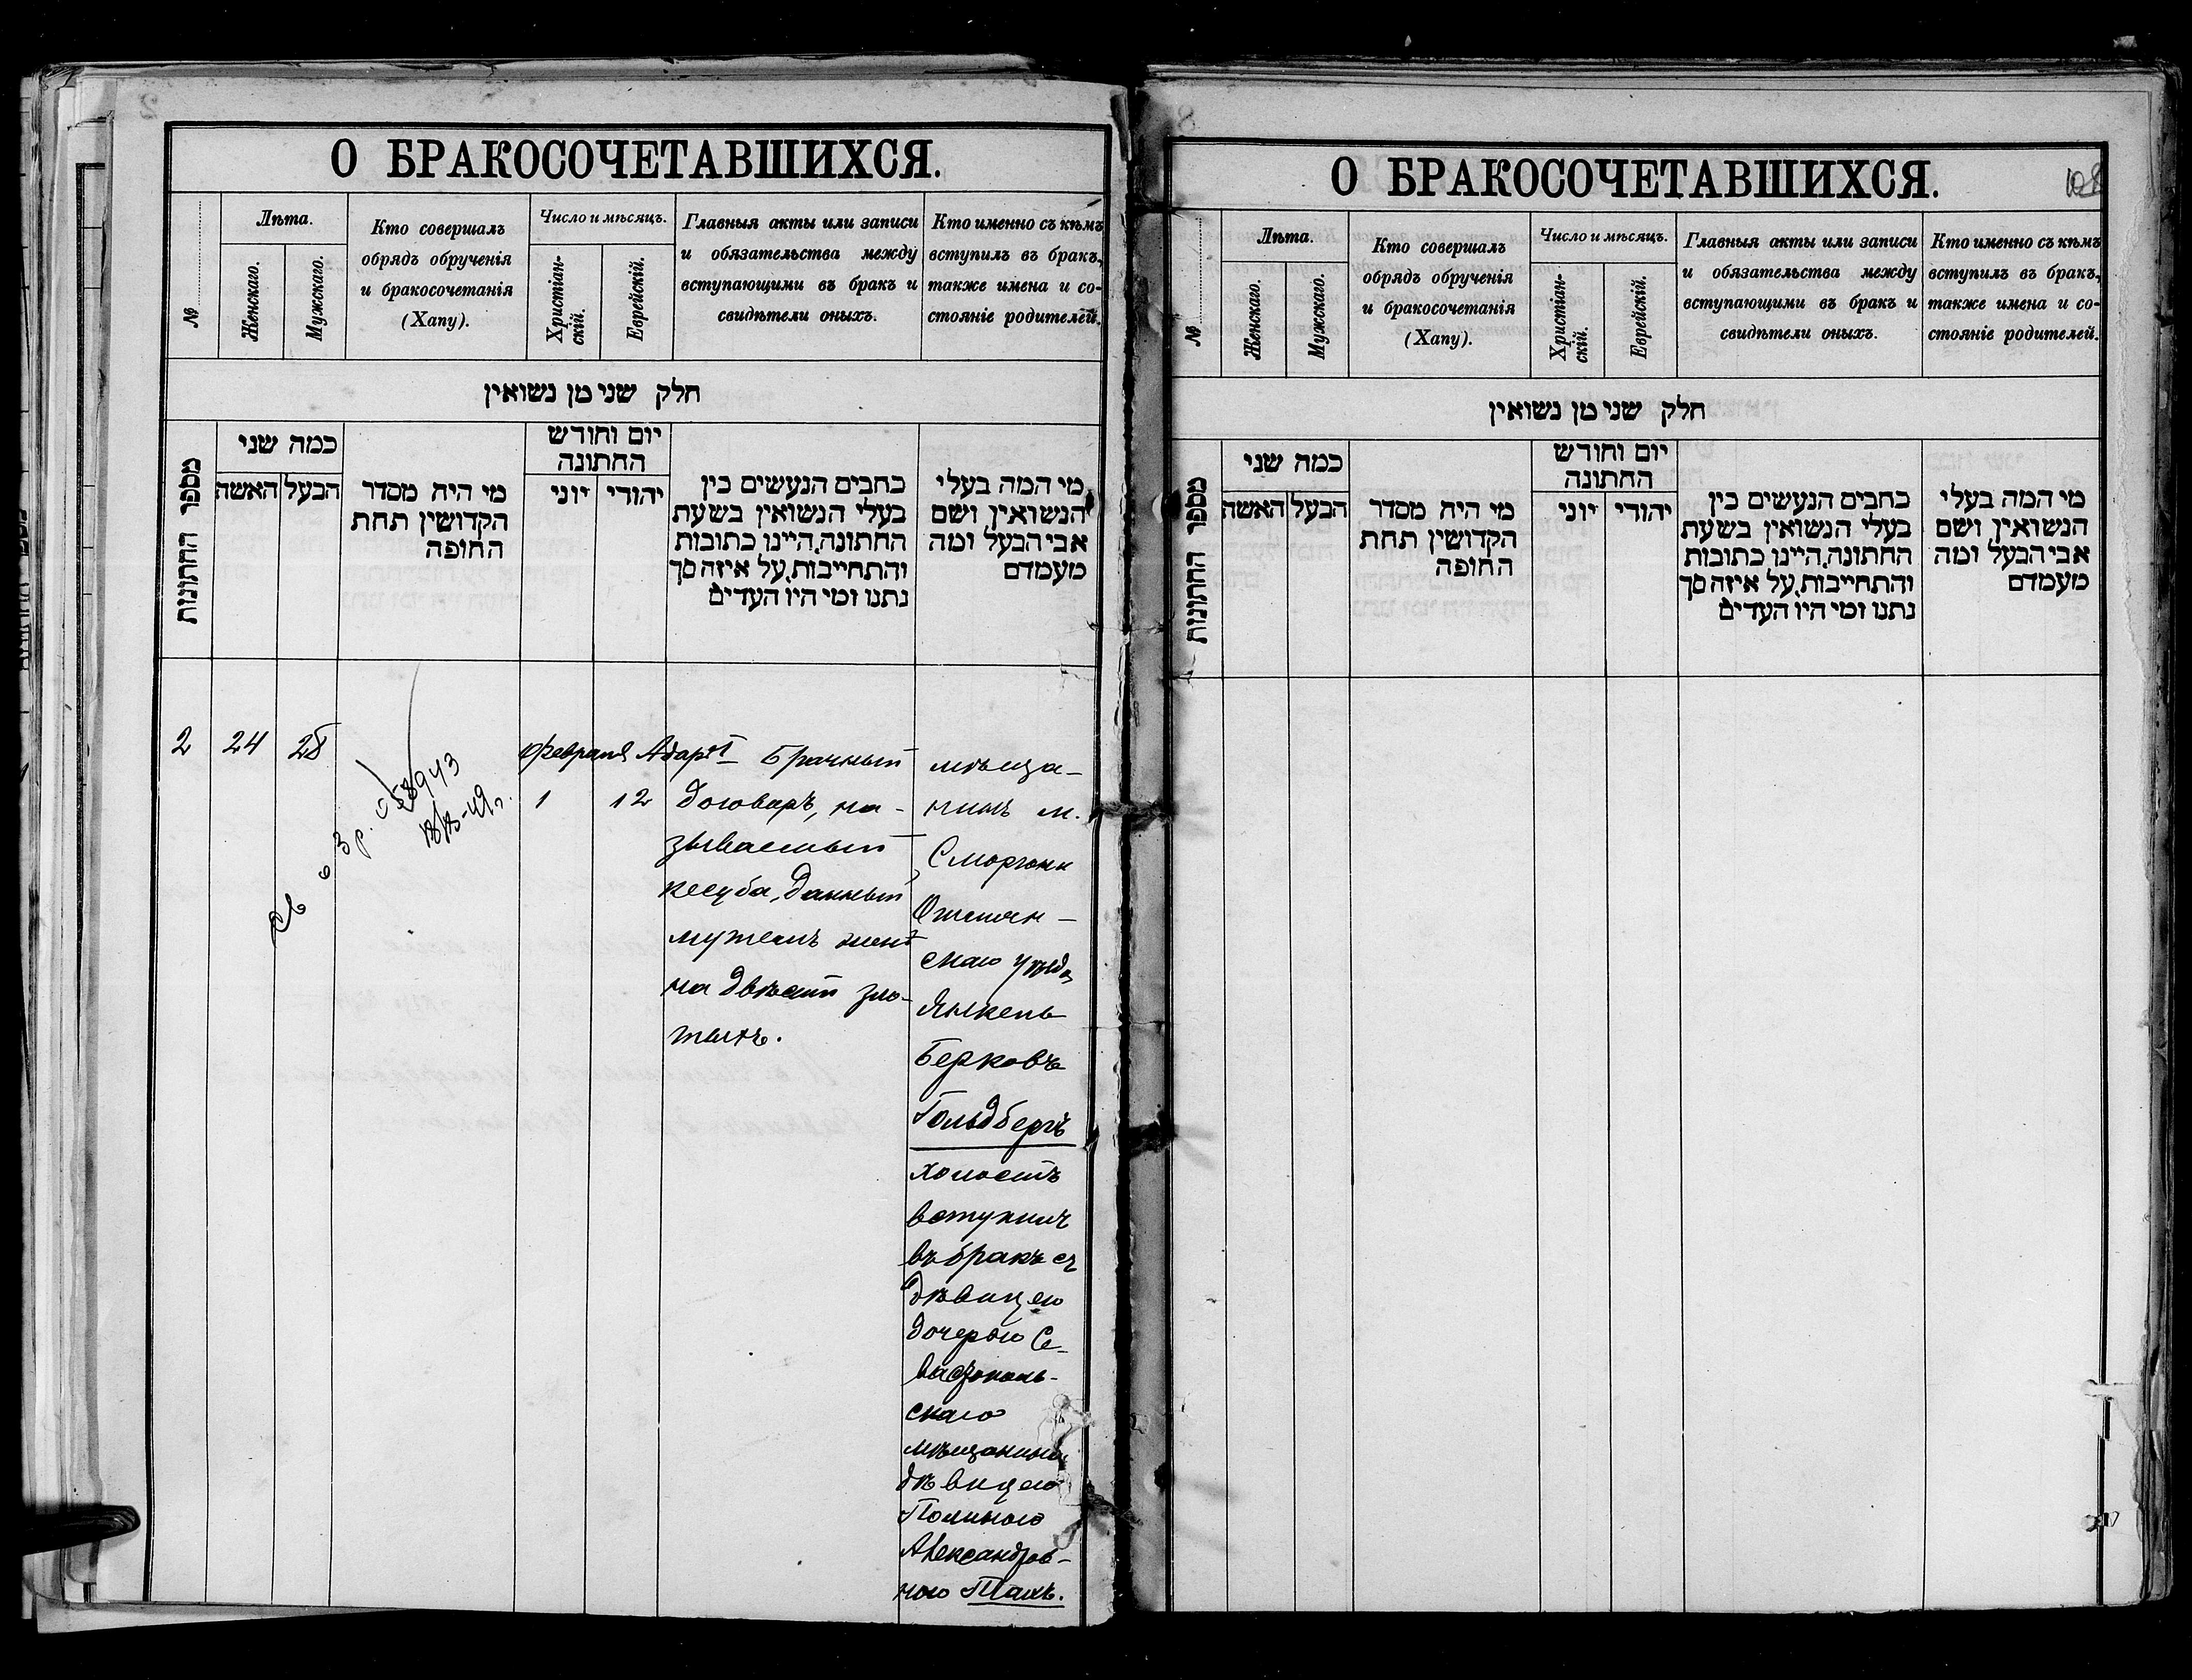 О БРАКОСОЧЕТАВШИХСЯ.
№
Лѣта.
Женскаго.
Мужскаго.
Кто совершалъ
обрядъ обрученія
и бракосочетанія
(Хапу).
Число и мѣсяцъ.
Христіан-
скій.
Еврейскій.
Главныя акты или записи
и обязательства между
вступающими въ бракъ и
свидѣтели оныхъ.
Кто именно съ кѣмъ
вступилъ въ бракъ,
также имена и со-
стояніе родителей.
חלק שני מן נשואין
מספר החתונות
כמה שני
האשה
הבעל
מי היה מסדר
הקדושין תחת
החופה
יום וחודש
החתונה
יוני
יהודי
כתבים הנעשים בין
בעלי הנשואין בשעת
החתונה, היינו כתובות
והתחייבות, על איזה סך
נתנו ומי היו העדים
מי המה בעלי
הנשואין, ושם
אבי הבעל ומה
מעמדם
2
24
28
Февраля
1
Адаръ I
12
Брачный
договоръ, на-
зываемый
кесуба, данный
мужемъ женѣ
на двѣсти зло-
тыхъ.
мѣща-
нинъ м.
Сморгонь
Ошмян-
скаго уѣзда
Янкель
Берковъ
Гольдбергъ
холостъ
вступилъ
въ бракъ съ
дѣвицею
дочерью Се-
вастополь-
скаго
мѣщанина
дѣвицею
Полиною
Александров-
ною Талъ.
О БРАКОСОЧЕТАВШИХСЯ.
№
Лѣта.
Женскаго.
Мужскаго.
Кто совершалъ
обрядъ обрученія
и бракосочетанія
(Хапу).
Число и мѣсяцъ.
Христіан-
скій.
Еврейскій.
Главныя акты или записи
и обязательства между
вступающими въ бракъ и
свидѣтели оныхъ.
Кто именно съ кѣмъ
вступилъ въ бракъ,
также имена и со-
стояніе родителей.
חלק שני מן נשואין
מספר החתונות
כמה שני
האשה
הבעל
מי היה מסדר
הקדושין תחת
החופה
יום וחודש
החתונה
יוני
יהודי
כתבים הנעשים בין
בעלי הנשואין בשעת
החתונה, היינו כתובות
והתחייבות, על איזה סך
נתנו ומי היו העדים
מי המה בעלי
הנשואין, ושם
אבי הבעל ומה
מעמדם